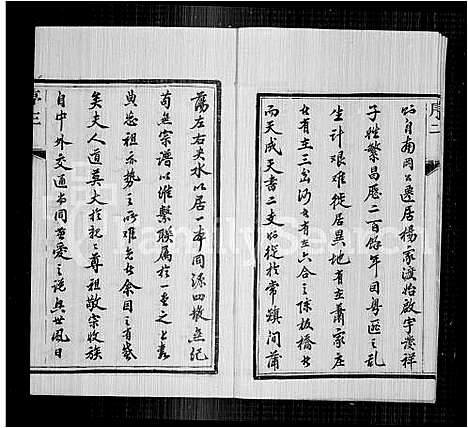 序二
始自南岡公遷居楊家渡始啟宇發祥
子姓繁昌歷二百餘年因粵匪之亂
生計艱難徙居異地有在蕭家庄
者有在三岔河者有在六合之條板橋者
而天成天喜二支始從於常鎮間蒲
蕩左右夾水以居一本同源四散無紀
苟無宗譜以維繫聯屬於一堂之上
與忘祖宗勢之所难免者余因之有感
矣夫人道莫大於祀之尊祖敬宗收族
自中外交通古同 愛之說與世風日
序三